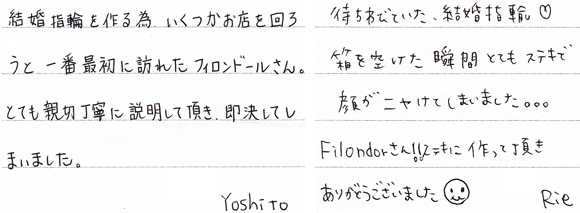 結婚指輪を作る為、いくつかお店を回ろ
うと一番最初に訪れたフィロンドールさん。
とても親切丁寧に説明して頂き、即決してし
まいました。
Yoshito
待ちわびていた、結婚指輪♡
箱を空けた瞬間とてもステキで
顔がニヤけてしまいました。。。
Filondorさん!!ステキに作って頂き
ありがとうございました☺
Rie